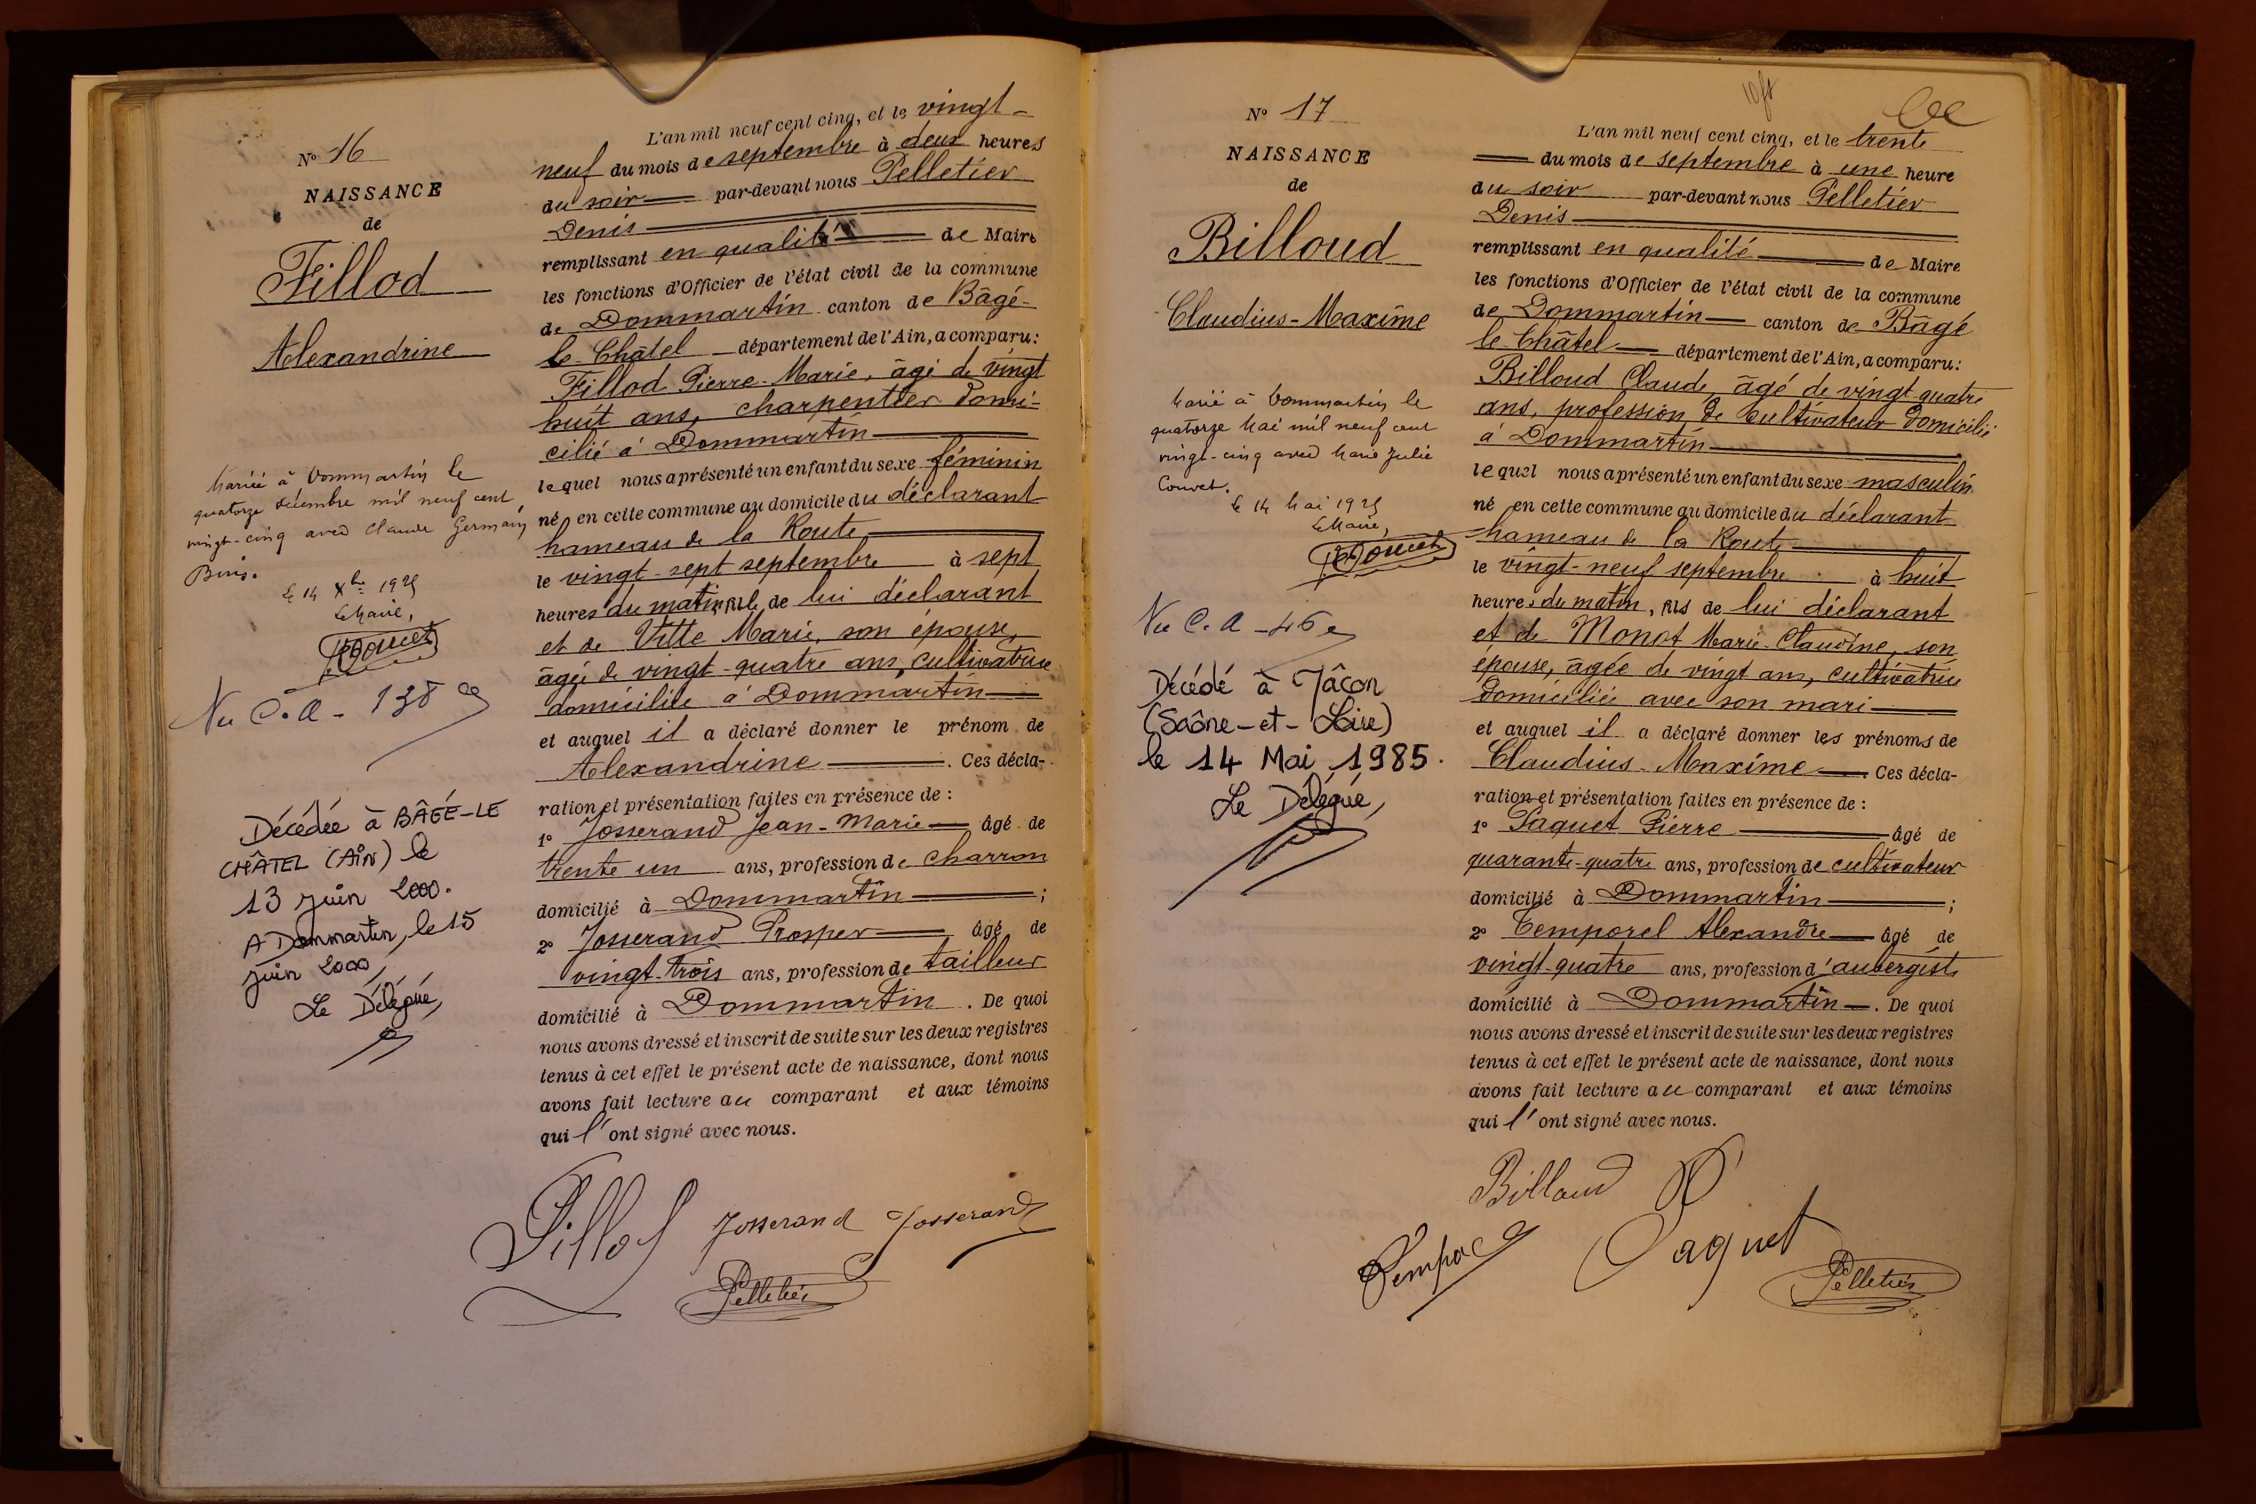 N° 16
NAISSANCE
de
Fillod
Alexandrine
Mariée à Dommartin le
quatorze décembre mil neuf cent
vingt-cinq avec Claude Germain
Le 14 Xbre 1925
Le Maire,
Vu C.A - 138
Décédée à BÂGÉ-LE
CHÂTEL (AIN) le
13 juin 2000.
A Dommartin, le 15
juin 2000,
Le Délégué,
L'an mil neuf cent cinq, et le vingt-
neuf du mois de septembre à deux heures
du soir par-devant nous Pelletier
Denis
remplissant en qualité de Maire
les fonctions d'Officier de l'état civil de la commune
de Dommartin canton de Bâgé-
le Châtel département de l'Ain, a comparu:
Fillod Pierre-Marie, âgé de vingt
huit ans, charpentier domi-
cilié à Dommartin
lequel nous a présenté un enfant du sexe féminin
né en cette commune au domicile du déclarant
hameau de la Route
le vingt-sept septembre à sept
heures du matin, fille de lui déclarant
et de Vitte Marie, son épouse,
âgée de vingt-quatre ans, cultivatrice
domiciliée à Dommartin
et auquel il a déclaré donner le prénom de
Alexandrine. Ces décla-
ration et présentation faites en présence de :
1° Josserand Jean-Marie âgé de
trente un ans, profession de charron
domicilié à Dommartin ;
2° Josserand Prosper âgé de
vingt-trois ans, profession de tailleur
domicilié à Dommartin. De quoi
nous avons dressé et inscrit de suite sur les deux registres
tenus à cet effet le présent acte de naissance, dont nous
avons fait lecture au comparant et aux témoins
qui l'ont signé avec nous.
Fillod Josserand Josserand
Pelletier
N° 17
NAISSANCE
de
Billoud
Claudius-Maxime
Marié à Dommartin le
quatorze Mai mil neuf cent
vingt-cinq avec Marie Julie
Couvet.
Le 14 Mai 1925
Le Maire,
Vu C.A - 46
Décédé à Mâcon
(Saône-et-Loire)
le 14 Mai 1985.
Le Délégué,
L'an mil neuf cent cinq, et le trente
du mois de septembre à une heure
du soir par-devant nous Pelletier
Denis
remplissant en qualité de Maire
les fonctions d'Officier de l'état civil de la commune
de Dommartin canton de Bâgé
le Châtel département de l'Ain, a comparu:
Billoud Claude, âgé de vingt-quatre
ans, profession de cultivateur domicilié
à Dommartin
lequel nous a présenté un enfant du sexe masculin
né en cette commune au domicile du déclarant
hameau de la Route
le vingt-neuf septembre à huit
heures du matin, fils de lui déclarant
et de Monot Marie-Claudine, son
épouse, âgée de vingt ans, cultivatrice
domiciliée avec son mari
et auquel il a déclaré donner les prénoms de
Claudius-Maxime. Ces décla-
ration et présentation faites en présence de :
1° Paquet Pierre âgé de
quarante-quatre ans, profession de cultivateur
domicilié à Dommartin ;
2° Temporel Alexandre âgé de
vingt-quatre ans, profession d'aubergiste
domicilié à Dommartin. De quoi
nous avons dressé et inscrit de suite sur les deux registres
tenus à cet effet le présent acte de naissance, dont nous
avons fait lecture au comparant et aux témoins
qui l'ont signé avec nous.
Billoud
Paquet
Pelletier